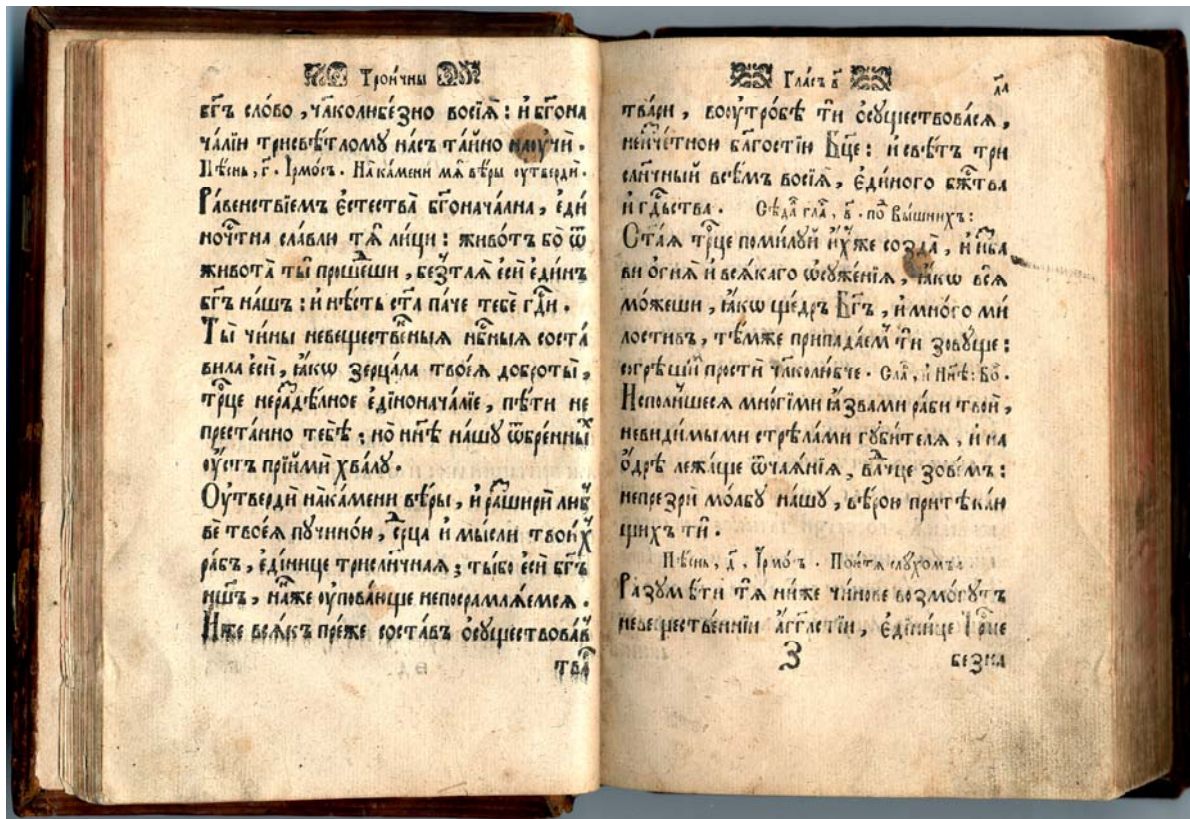 Трои́чны
бг҃ъ сло́во, чл҃колибе́зно восїѧ̀: и҆ бг҃она
ча́лїи трисвѣ́тлому на́съ та́йно наоучѝ.
Пѣ́снь, г҃. І҆рмо́съ. На́ка́мени мѧ̀ вѣ́ры оутвердѝ.
Ра́венствїемъ є҆стества̀ бг҃онача́лна, є҆ди
ночⷭ҇тна сла́влю тѧ̀ ли́ци: живо́тъ бо ѿ
живота̀ ты̀ проше́ши, без̾таѧ̀ є҆сѝ є҆ди́нъ
бг҃ъ на́шъ: и҆ нѣ́сть ст҃а па́че тебѐ гдⷭ҇и.
Ты̀ чи́ны невещестⷡ҇еныѧ нбⷭ҇ныѧ соста́
вила є҆сѝ, ꙗ҆́кѡ зерца́ла твоеѧ̀ доброты̀,
трⷪ҇це нераздѣ́лное є҆диноначалїе, пѣ́ти не
преста́нно тебѣ̀: но нн҃ѣ на́шу ѿбре́нныⷯ
оу҆́стъ прїимѝ хвалу̀.
Оутвердѝ на́ка́мени вѣ́ры, и҆ ра́ширѝ лиⷠ҇
вѐ твоеѧ̀ пучино́и, срⷣца и҆ мы́сли твои́ⷯ
ра́бъ, є҆дини́це трисли́чнаѧ; ты́бо є҆сѝ бг҃ъ
нш҃ъ, на́же оу҆пова́юще непосрамлѧ́емсѧ.
И҆́же всѧ́къ пре́же соста́въ ѻ҆существова́в
тва́
Гла́съ в҃
л҃а
тва́ри, воу҆тро́бѣ тѝ ѻ҆существова́сѧ,
неиче́тною бл҃гостїю Бц҃е: и҆ свѣ́тъ три
сли́чный всѣ́мъ восїѧ̀, є҆ди́ного бж҃тва
и҆ гдⷭ҇ьства. Сѣдаⷧ҇ глаⷭ҇, в҃. поⷣ Вы́шнихъ:
Ст҃аѧ трⷪ҇це поми́луй и҆́хже созда̀, и҆ и҆зба
ви ѻ҆гнѧ̀ и҆ всѧ́каго ѡ҆суже́нїѧ, ꙗ҆́кѡ всѧ̀
мо́жеши, ꙗ҆́кѡ ще́дръ Бг҃ъ, и҆ мно́го ми
лостивъ, тѣ́мже припада́емⷯ тѝ зову́ще:
согрѣ́шїⷨ прости чл҃колю́бче. Слаⷡ҇, и҆ нн҃ѣ: Боⷢ҇.
И҆спо́лншесѧ мно́гіми ꙗ҆́звами ра́би твоѝ,
невиди́мыми стрѣ́лами гу́бителѧ, и҆ на
ѻ҆́дрѣ лежа́ще ѿча́ѧнїѧ, влⷣчце зове́мъ:
непре́зрѝ мо́лбу на́шу, вѣ́рою притѣка́ю
щихъ тѝ.
Пѣ́снь, д҃, І҆рмо́ⷭ҇. Пои́тѧ слу́хомъ:
Разумѣ́ти тѧ̀ ни́же чи́нове возмо́гутъ
невеще́ственнїи а҆́гг҃лстїи, є҆дини́це Трⷪ҇це
З безна